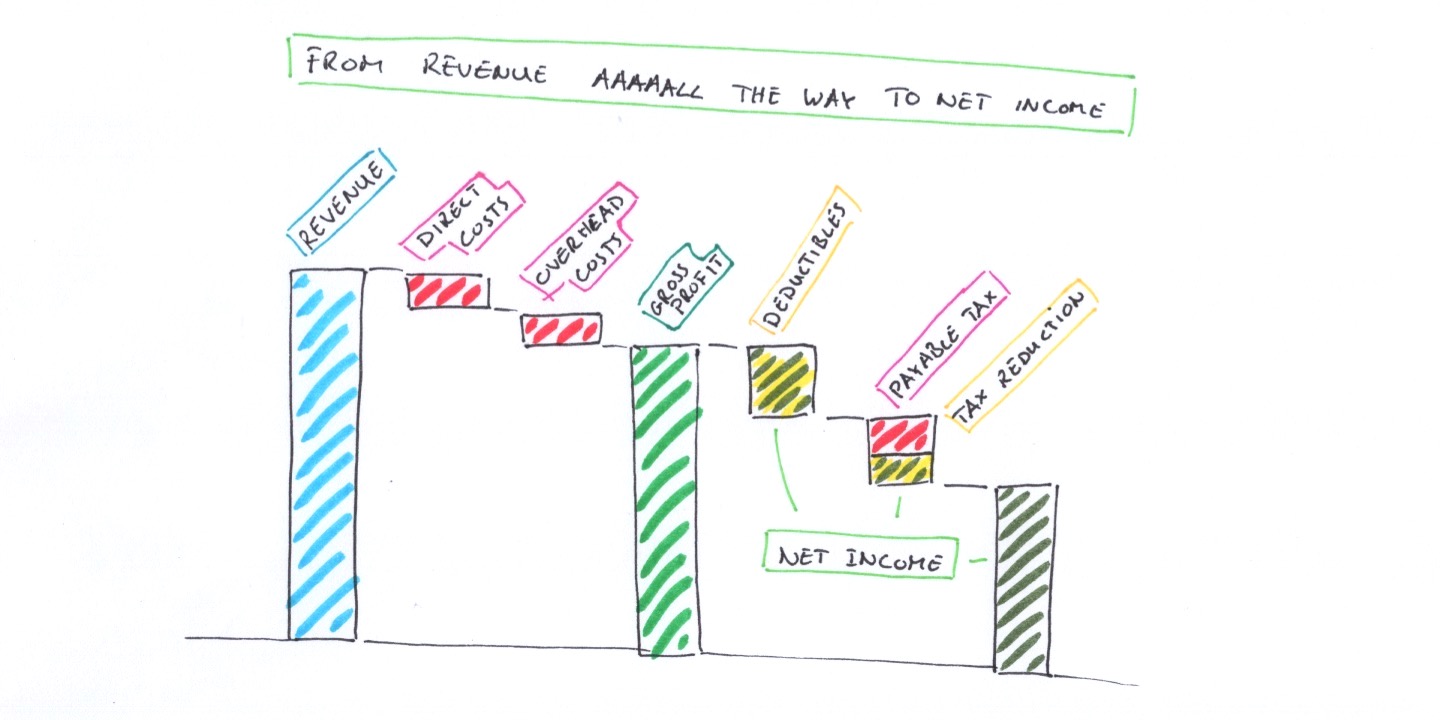 FROM REVENUE AAAAALL THE WAY TO NET INCOME
REVENUE
DIRECT
COSTS
OVERHEAD
COSTS
GROSS
PROFIT
DEDUCTIBLES
PAYABLE TAX
TAX REDUCTION
NET INCOME